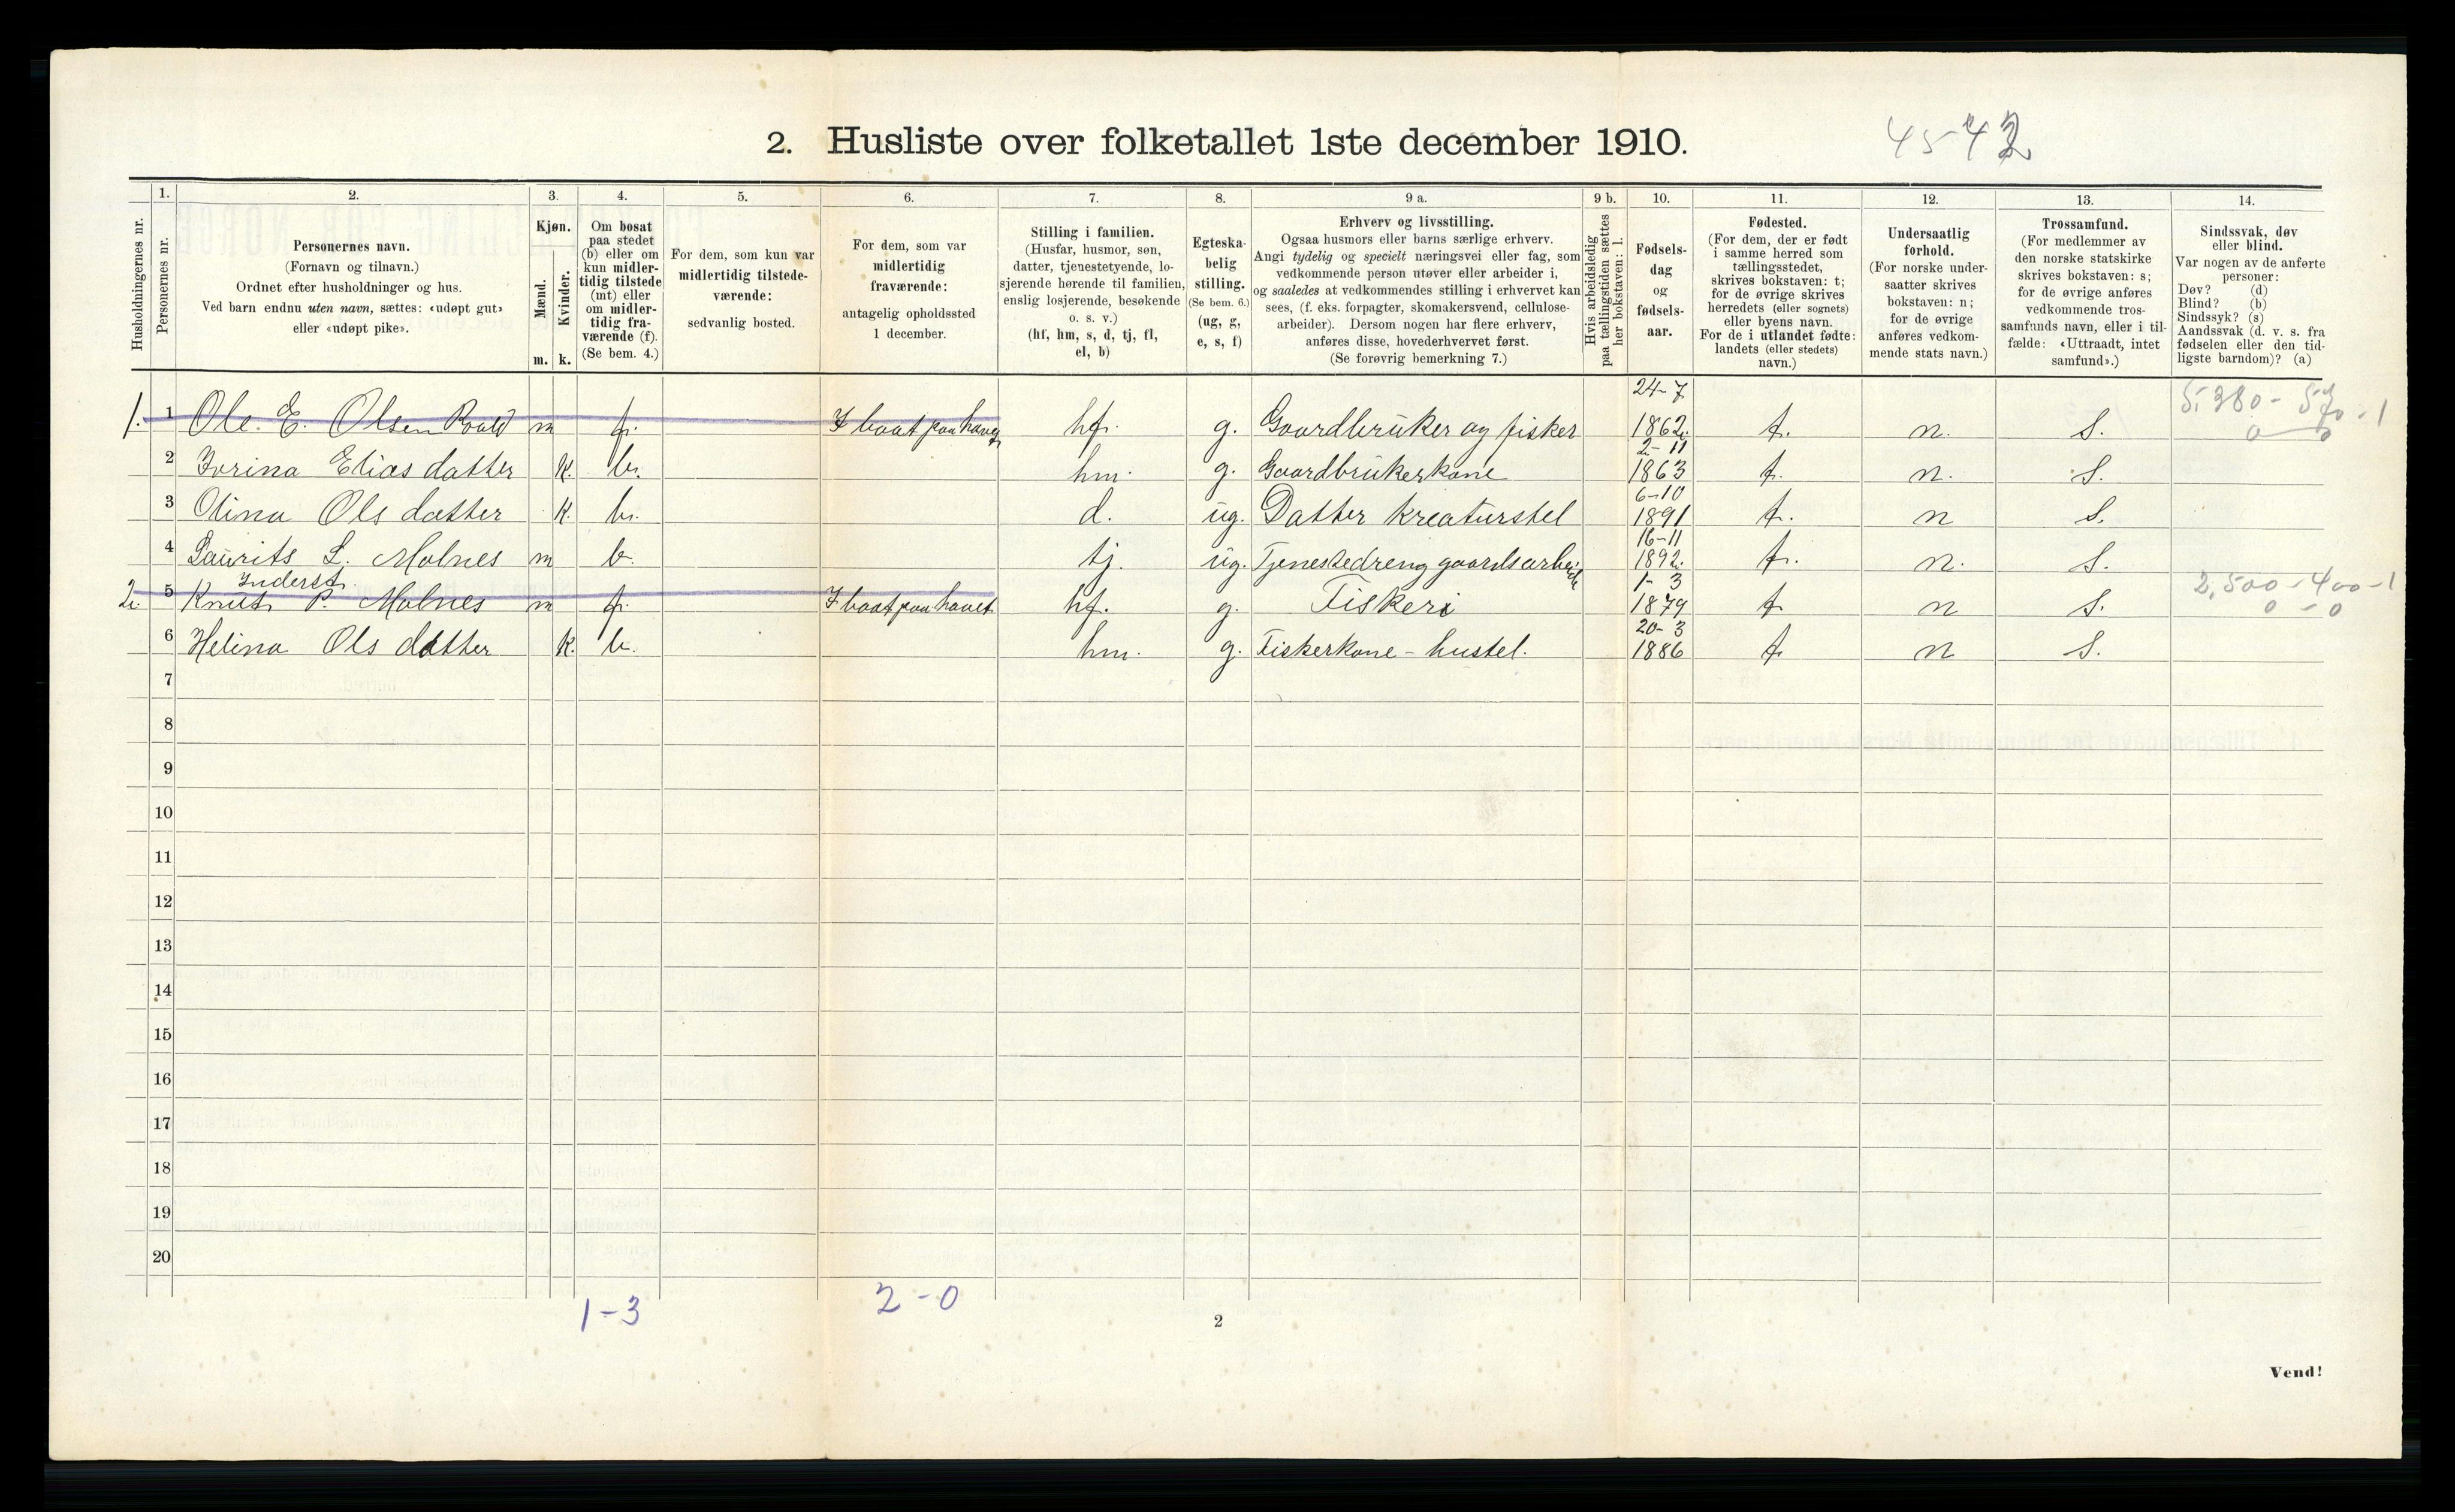 2. Husliste over folketallet 1ste december 1910.
45-42
1. 2. 3. 4. 5. 6. 7. 8. 9 a. 9 b. 10. 11. 12. 13. 14.
Husholdningernes nr.
Personernes nr.
Personernes navn.
(Fornavn og tilnavn.)
Ordnet efter husholdninger og hus.
Ved barn endnu uten navn, sættes: «udøpt gut»
eller «udøpt pike».
Kjøn.
Mænd.
Kvinder.
m. k.
Om bosat
paa stedet
(b) eller om
kun midler-
tidig tilstede
(mt) eller
om midler-
tidig fra-
værende (f).
(Se bem. 4.)
For dem, som kun var
midlertidig tilstede-
værende:
sedvanlig bosted.
For dem, som var
midlertidig
fraværende:
antagelig opholdssted
1 december.
Stilling i familien.
(Husfar, husmor, søn,
datter, tjenestetyende, lo-
sjerende hørende til familien,
enslig losjerende, besøkende
o. s. v.)
(hf, hm, s, d, tj, fl,
el, b)
Egteska-
belig
stilling.
(Se bem. 6.)
(ug, g,
e, s, f)
Erhverv og livsstilling.
Ogsaa husmors eller barns særlige erhverv.
Angi tydelig og specielt næringsvei eller fag, som
vedkommende person utøver eller arbeider i,
og saaledes at vedkommendes stilling i erhvervet kan
sees, (f. eks. forpagter, skomakersvend, cellulose-
arbeider). Dersom nogen har flere erhverv,
anføres disse, hovederhvervet først.
(Se forøvrig bemerkning 7.)
Hvis arbeidsledig
paa tællingstiden sættes
her bokstaven: l.
Fødsels-
dag
og
fødsels-
aar.
Fødested.
(For dem, der er født
i samme herred som
tællingsstedet,
skrives bokstaven: t;
for de øvrige skrives
herredets (eller sognets)
eller byens navn.
For de i utlandet fødte:
landets (eller stedets)
navn.)
Undersaatlig
forhold.
(For norske under-
saatter skrives
bokstaven: n;
for de øvrige
anføres vedkom-
mende stats navn.)
Trossamfund.
(For medlemmer av
den norske statskirke
skrives bokstaven: s;
for de øvrige anføres
vedkommende tros-
samfunds navn, eller i til-
fælde: «Uttraadt, intet
samfund».)
Sindssvak, døv
eller blind.
Var nogen av de anførte
personer:
Døv? (d)
Blind? (b)
Sindssyk? (s)
Aandssvak (d. v. s. fra
fødselen eller den tid-
ligste barndom)? (a)
24-7
1. 1 Ole. E. Olsen Roald m f. I baat paa havet hf. g. Gaardbruker og fisker 1862. t. n. S.
2-11
2 Ivrina Elias datter k. b. hm. g. Gaardbrukerkone 1863 t. n. S.
6-10
3 Olina Ols datter k. b. d. ug. Datter Kreaturstel 1891 t. n S.
16-11
4 Laurits L. Molnes m b. tj. ug. Tjenestedreng gaardsarbeide 1892. t. n. S.
Inderst. 1-3 2,500-400-1
2. 5 Knut P. Molnes m f. I baat paa havet hf. g. Fiskeri 1879 t n S. 0-0
20-3
6 Helina Ols datter k. b. hm. g. Fiskerkone - hustel. 1886 t. n S.
7
8
9
10
11
12
13
14
15
16
17
18
19
20
1-3
2-0
2
Vend!